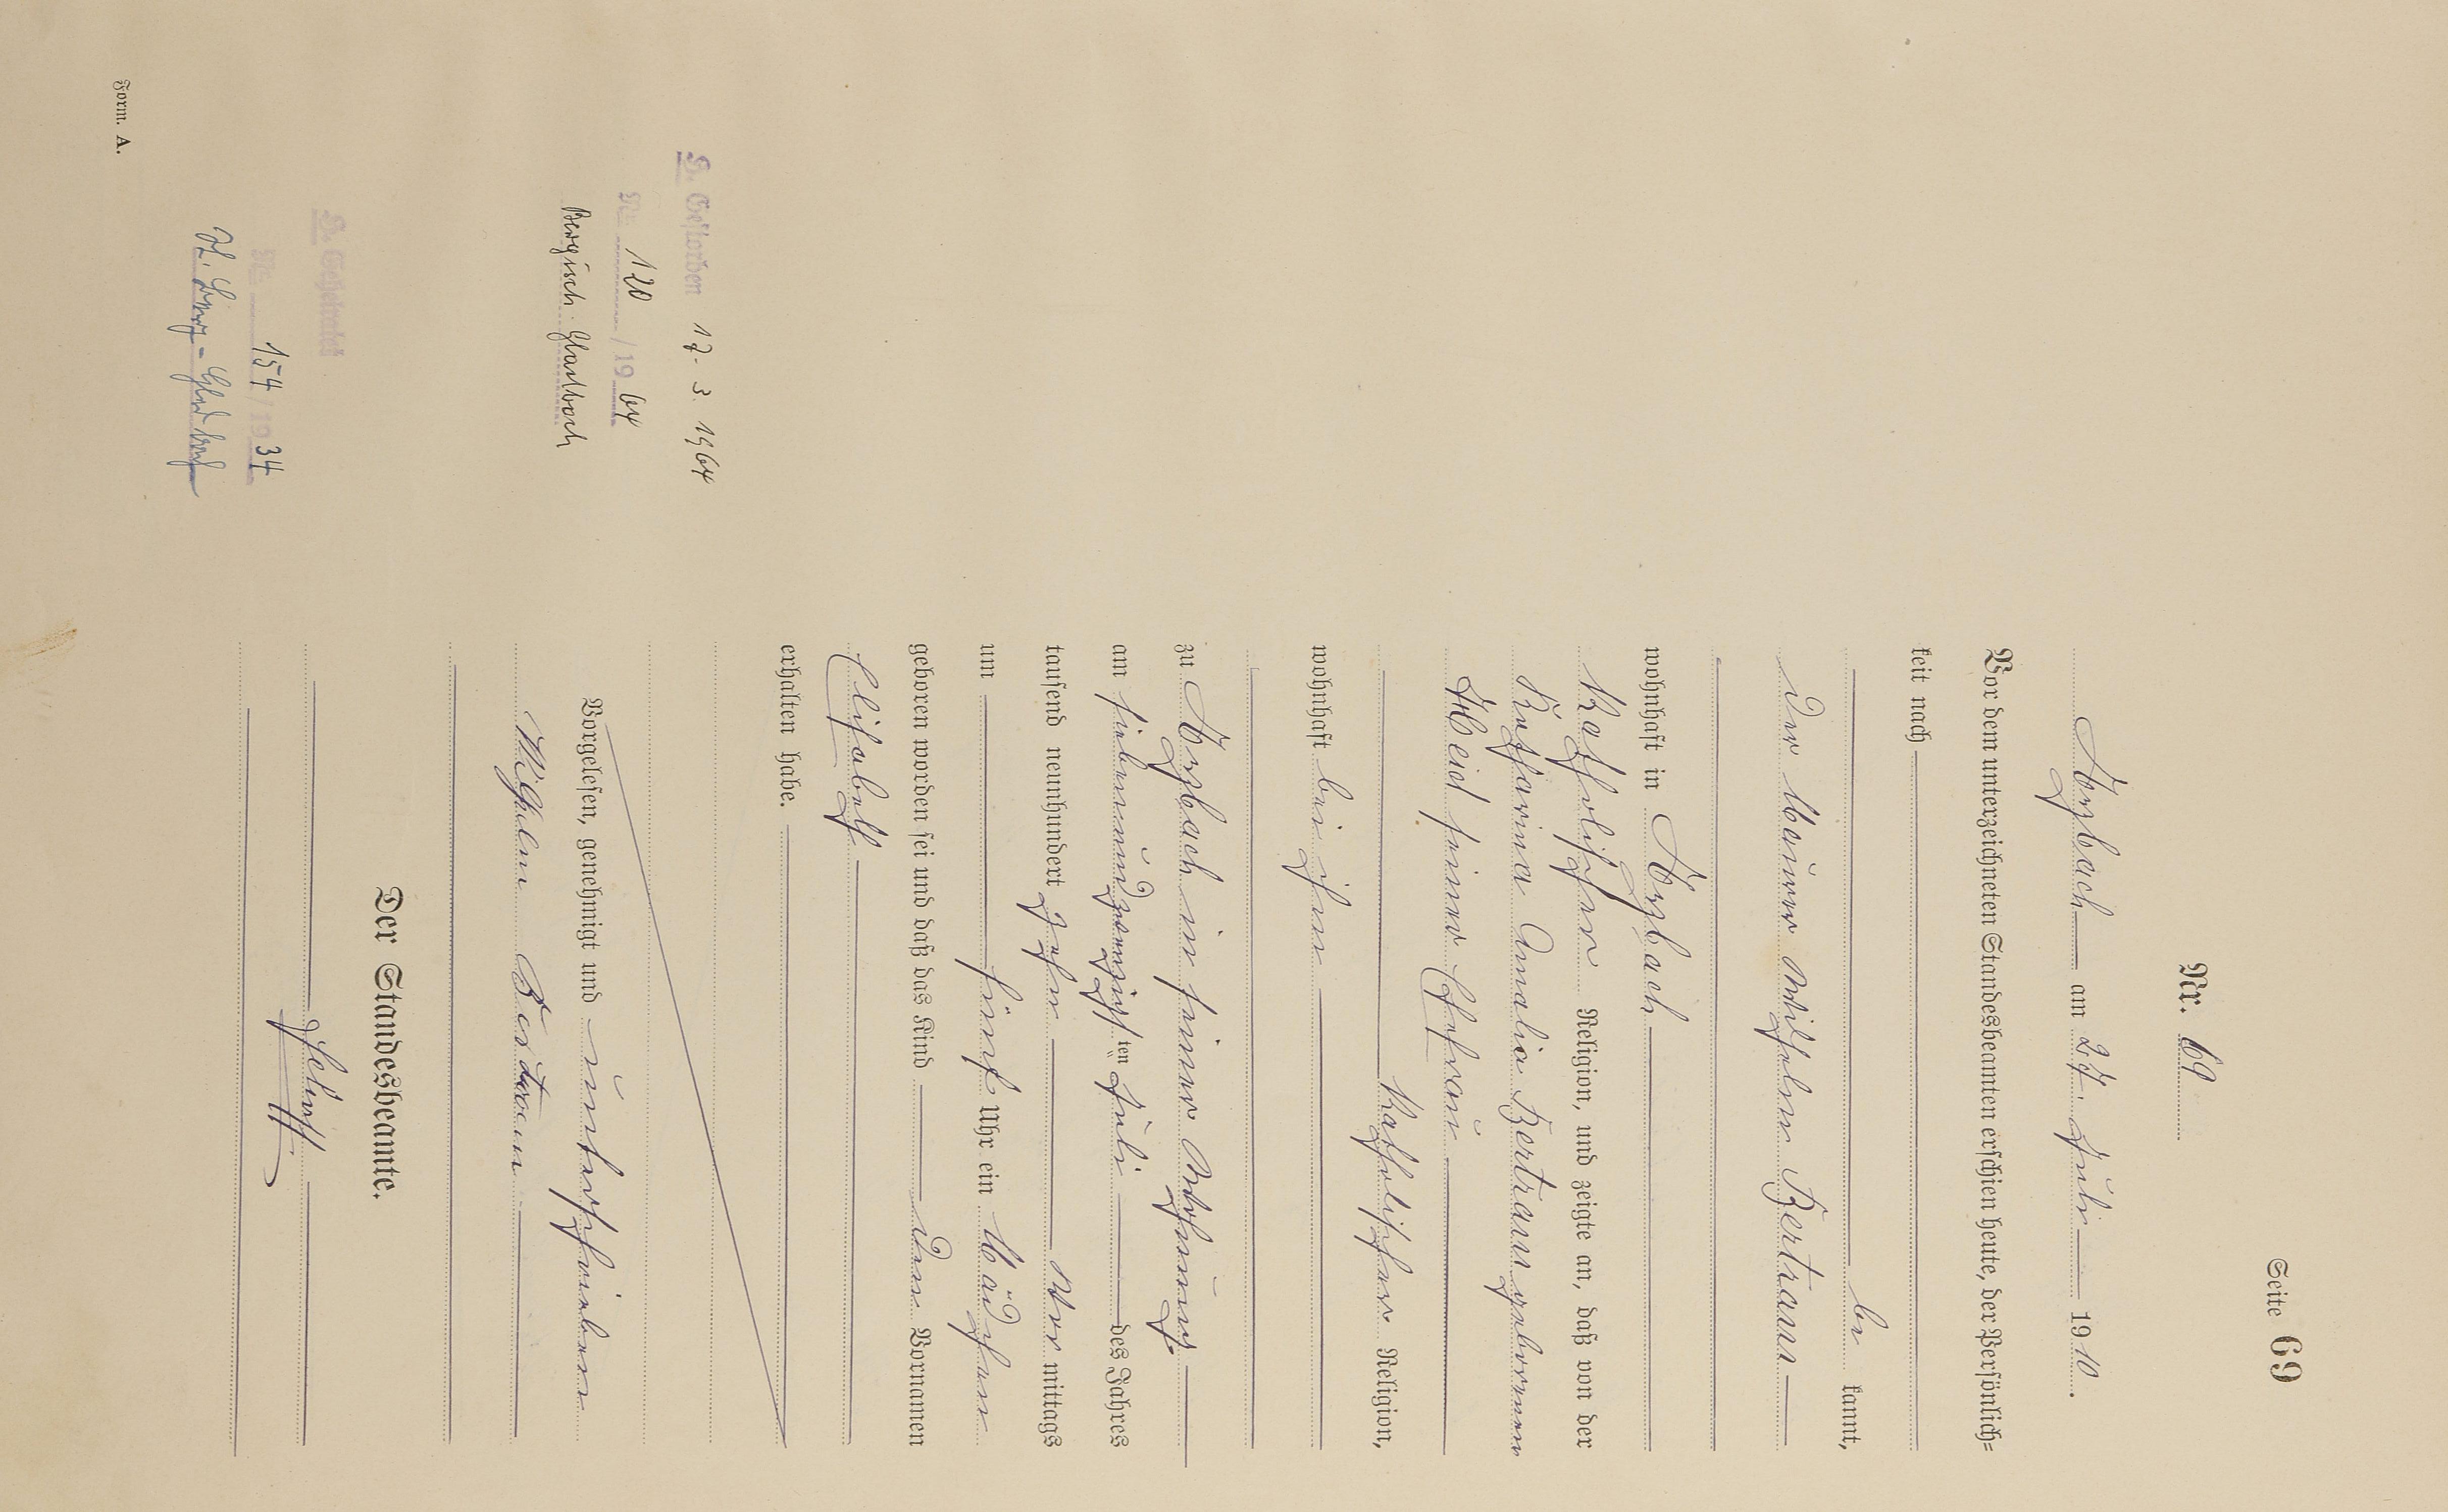 Seite 69
Nr. 69
Arzbach am 27. Juli 1910.
Vor dem unterzeichneten Standesbeamten erschien heute, der Persönlich-
keit nach
be kannt,
der Maurer Wilhelm Bertram
wohnhaft in Arzbach
katholischer Religion, und zeigte an, daß von der
Katharina Amalia Bertram geborenen
Heid seiner Ehefrau
katholischer Religion,
wohnhaft bei ihm
zu Arzbach in seiner Wohnung
am siebenundzwanzigsten ten Juli des Jahres
tausend neunhundert zehn Vor mittags
um fünf Uhr ein Mädchen
geboren worden sei und daß das Kind den Vornamen
Elisabeth
erhalten habe.
Vorgelesen, genehmigt und unterschrieben
Wilhelm Bertram
Der Standesbeamte.
G. Gestorben 17. 3. 1964
Nr. 120 / 19 64
Bergisch Gladbach
G. Geheiratet
Nr. 154 / 19 34
Gladbach
Form. A.